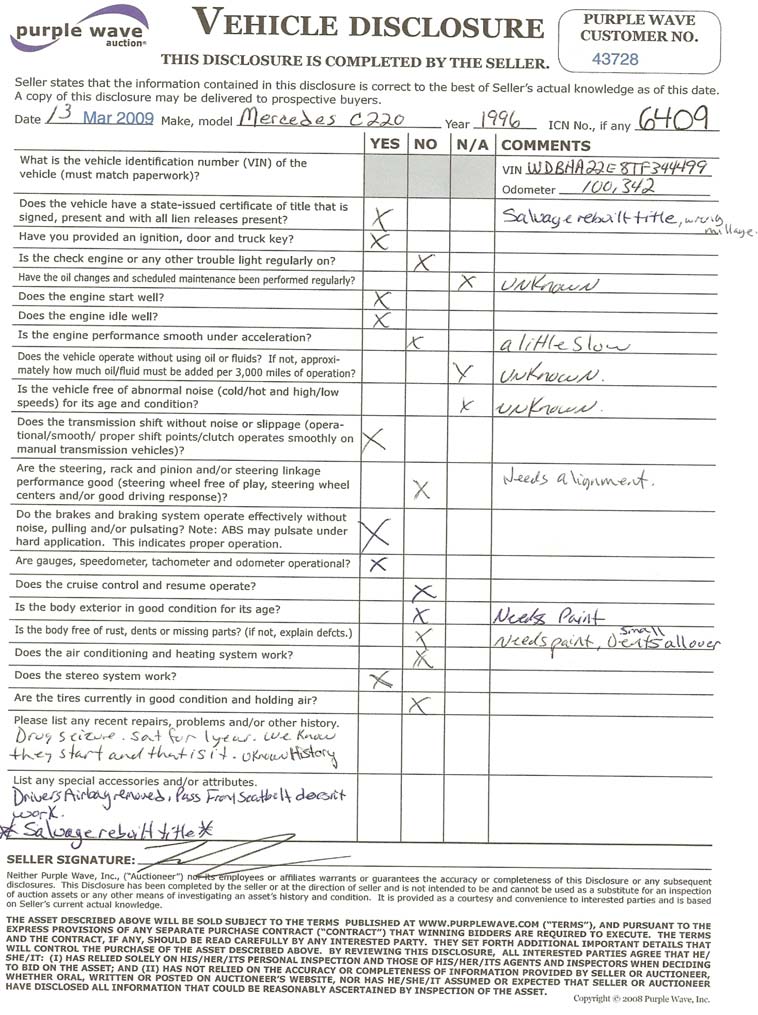 purple wave
auction®
VEHICLE DISCLOSURE
THIS DISCLOSURE IS COMPLETED BY THE SELLER.
PURPLE WAVE
CUSTOMER NO.
43728
Seller states that the information contained in this disclosure is correct to the best of Seller's actual knowledge as of this date.
A copy of this disclosure may be delivered to prospective buyers.
Date 13 Mar 2009 Make, model Mercedes C220 Year 1996 ICN No., if any 6409
YES NO N/A COMMENTS
What is the vehicle identification number (VIN) of the
vehicle (must match paperwork)?
VIN WDBHA22E8TF344499
Odometer 100,342
Does the vehicle have a state-issued certificate of title that is
signed, present and with all lien releases present?
X Salvage rebuilt title, wrong
millage.
Have you provided an ignition, door and truck key? X
Is the check engine or any other trouble light regularly on? X
Have the oil changes and scheduled maintenance been performed regularly? X UNKNOWN
Does the engine start well? X
Does the engine idle well? X
Is the engine performance smooth under acceleration? X a little slow
Does the vehicle operate without using oil or fluids? If not, approxi-
mately how much oil/fluid must be added per 3,000 miles of operation? X UNKNOWN.
Is the vehicle free of abnormal noise (cold/hot and high/low
speeds) for its age and condition? X UNKNOWN.
Does the transmission shift without noise or slippage (opera-
tional/smooth/ proper shift points/clutch operates smoothly on
manual transmission vehicles)? X
Are the steering, rack and pinion and/or steering linkage
performance good (steering wheel free of play, steering wheel
centers and/or good driving response)? X Needs alignment.
Do the brakes and braking system operate effectively without
noise, pulling and/or pulsating? Note: ABS may pulsate under
hard application. This indicates proper operation. X
Are gauges, speedometer, tachometer and odometer operational? X
Does the cruise control and resume operate? X
Is the body exterior in good condition for its age? X Needs Paint
Is the body free of rust, dents or missing parts? (if not, explain defcts.) X Needs paint, small Dents all over
Does the air conditioning and heating system work? X
Does the stereo system work? X
Are the tires currently in good condition and holding air? X
Please list any recent repairs, problems and/or other history.
Drug seizure. Sat for 1 year. We know
they start and that is it. History
List any special accessories and/or attributes.
Drivers Airbag removed, Pass Seatbelt doesnt
work.
* Salvage rebuilt title *
SELLER SIGNATURE:
Neither Purple Wave, Inc., ("Auctioneer") nor its employees or affiliates warrants or guarantees the accuracy or completeness of this Disclosure or any subsequent
disclosures. This Disclosure has been completed by the seller or at the direction of seller and is not intended to be and cannot be used as a substitute for an inspection
of auction assets or any other means of investigating an asset's history and condition. It is provided as a courtesy and convenience to interested parties and is based
on Seller's current actual knowledge.
THE ASSET DESCRIBED ABOVE WILL BE SOLD SUBJECT TO THE TERMS PUBLISHED AT WWW.PURPLEWAVE.COM ("TERMS"), AND PURSUANT TO THE
EXPRESS PROVISIONS OF ANY SEPARATE PURCHASE CONTRACT ("CONTRACT") THAT WINNING BIDDERS ARE REQUIRED TO EXECUTE. THE TERMS
AND THE CONTRACT, IF ANY, SHOULD BE READ CAREFULLY BY ANY INTERESTED PARTY. THEY SET FORTH ADDITIONAL IMPORTANT DETAILS THAT
WILL CONTROL THE PURCHASE OF THE ASSET DESCRIBED ABOVE. BY REVIEWING THIS DISCLOSURE, ALL INTERESTED PARTIES AGREE THAT HE/
SHE/IT: (I) HAS RELIED SOLELY ON HIS/HER/ITS PERSONAL INSPECTION AND THOSE OF HIS/HER/ITS AGENTS AND INSPECTORS WHEN DECIDING
TO BID ON THE ASSET; AND (II) HAS NOT RELIED ON THE ACCURACY OR COMPLETENESS OF INFORMATION PROVIDED BY SELLER OR AUCTIONEER,
WHETHER ORAL, WRITTEN OR POSTED ON AUCTIONEER'S WEBSITE, NOR HAS HE/SHE/IT ASSUMED OR EXPECTED THAT SELLER OR AUCTIONEER
HAVE DISCLOSED ALL INFORMATION THAT COULD BE REASONABLY ASCERTAINED BY INSPECTION OF THE ASSET.
Copyright © 2008 Purple Wave, Inc.